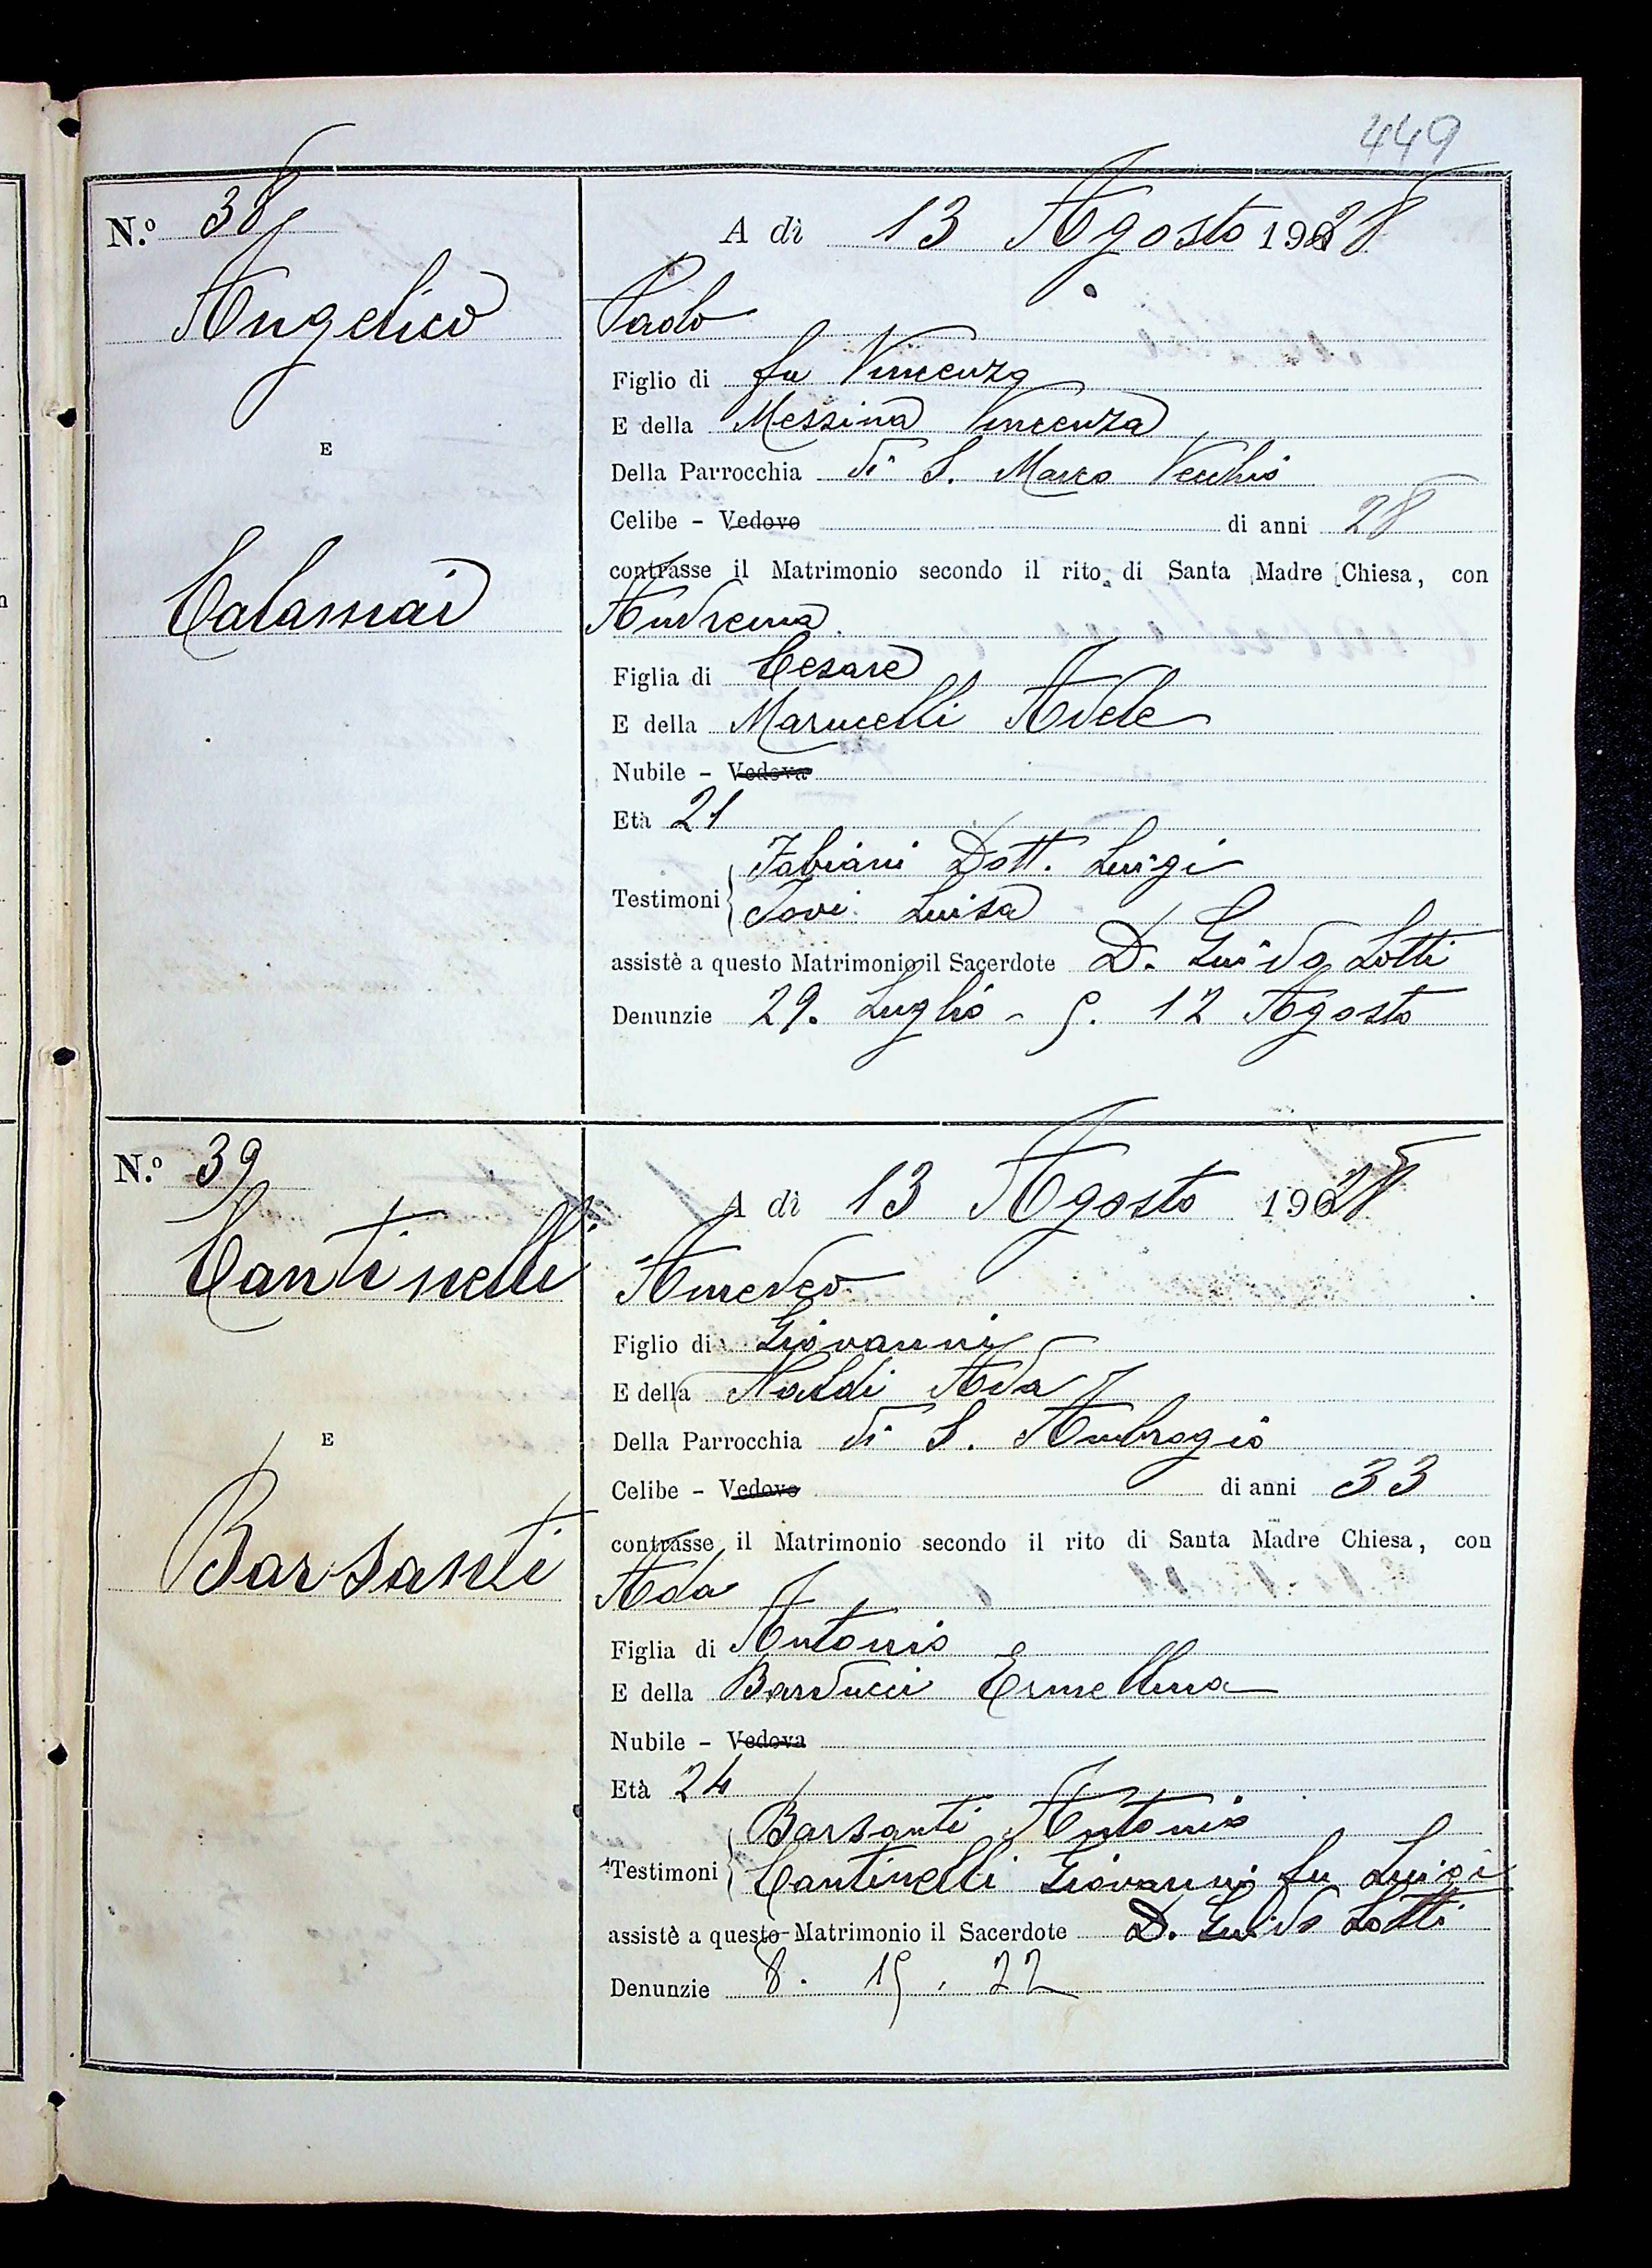 449
N.º 38
A dì 13 Agosto 1928
Angelico
Paolo
Figlio di fu Vincenzo
E della Messina Vincenza
E
Della Parrocchia di S. Marco Vecchio
Celibe - Vedovo di anni 28
contrasse il Matrimonio secondo il rito di Santa Madre Chiesa, con
Calamai
Andreina
Figlia di Cesare
E della Marucelli Adele
Nubile - Vedova
Età 21
Fabiani Dott. Luigi
Testimoni
Jovi Luisa
assistè a questo Matrimonio il Sacerdote D. Guido Lotti
Denunzie 29. Luglio - 5. 12 Agosto
N.º 39
A dì 13 Agosto 1928
Cantinelli
Amedeo
Figlio di Giovanni
E della Naldi Ada
E
Della Parrocchia di S. Ambrogio
Celibe - Vedovo di anni 33
contrasse il Matrimonio secondo il rito di Santa Madre Chiesa, con
Barsanti
Ada
Figlia di Antonio
E della Barducci Ermellina
Nubile - Vedova
Età 24
Barsanti Antonio
Testimoni
Cantinelli Giovanni fu Luigi
assistè a questo Matrimonio il Sacerdote D. Guido Lotti
Denunzie 8. 15. 22